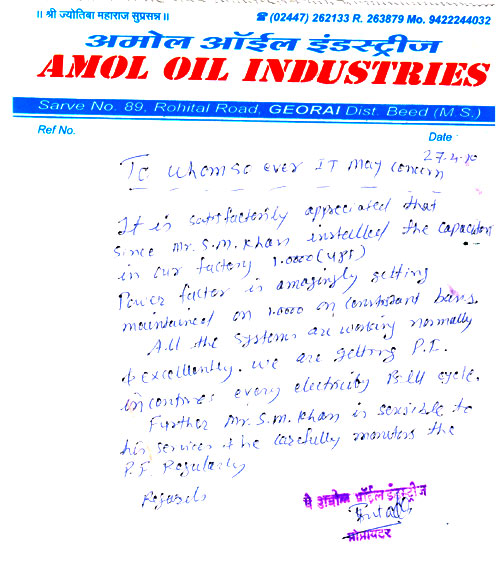 ॥ श्री ज्योतिबा महाराज सुप्रसन्न ॥ ☎ (02447) 262133 R. 263879 Mo. 9422244032
अमोल ऑईल इंडस्ट्रीज
AMOL OIL INDUSTRIES
Sarve No. 89, Rohital Road, GEORAI Dist. Beed (M.S.)
Ref No. Date :
27-4-10
To whomso ever IT May concern
It is satisfactorily appreciated that
since Mr. S.M. Khan installed the capacitors
in our factory 1.0000
Power factor is amazingly getting
maintained on 1.0000 on constant basis.
All the systems are working normally
& excellently. we are getting P.I.
incentives every electricity Bill cycle.
Further Mr. S.M. Khan is sensible to
his services & he carefully monitors the
P.F. Regularly
Regards
मे अमोल ऑईल इंडस्ट्रीज
प्रोप्रायटर